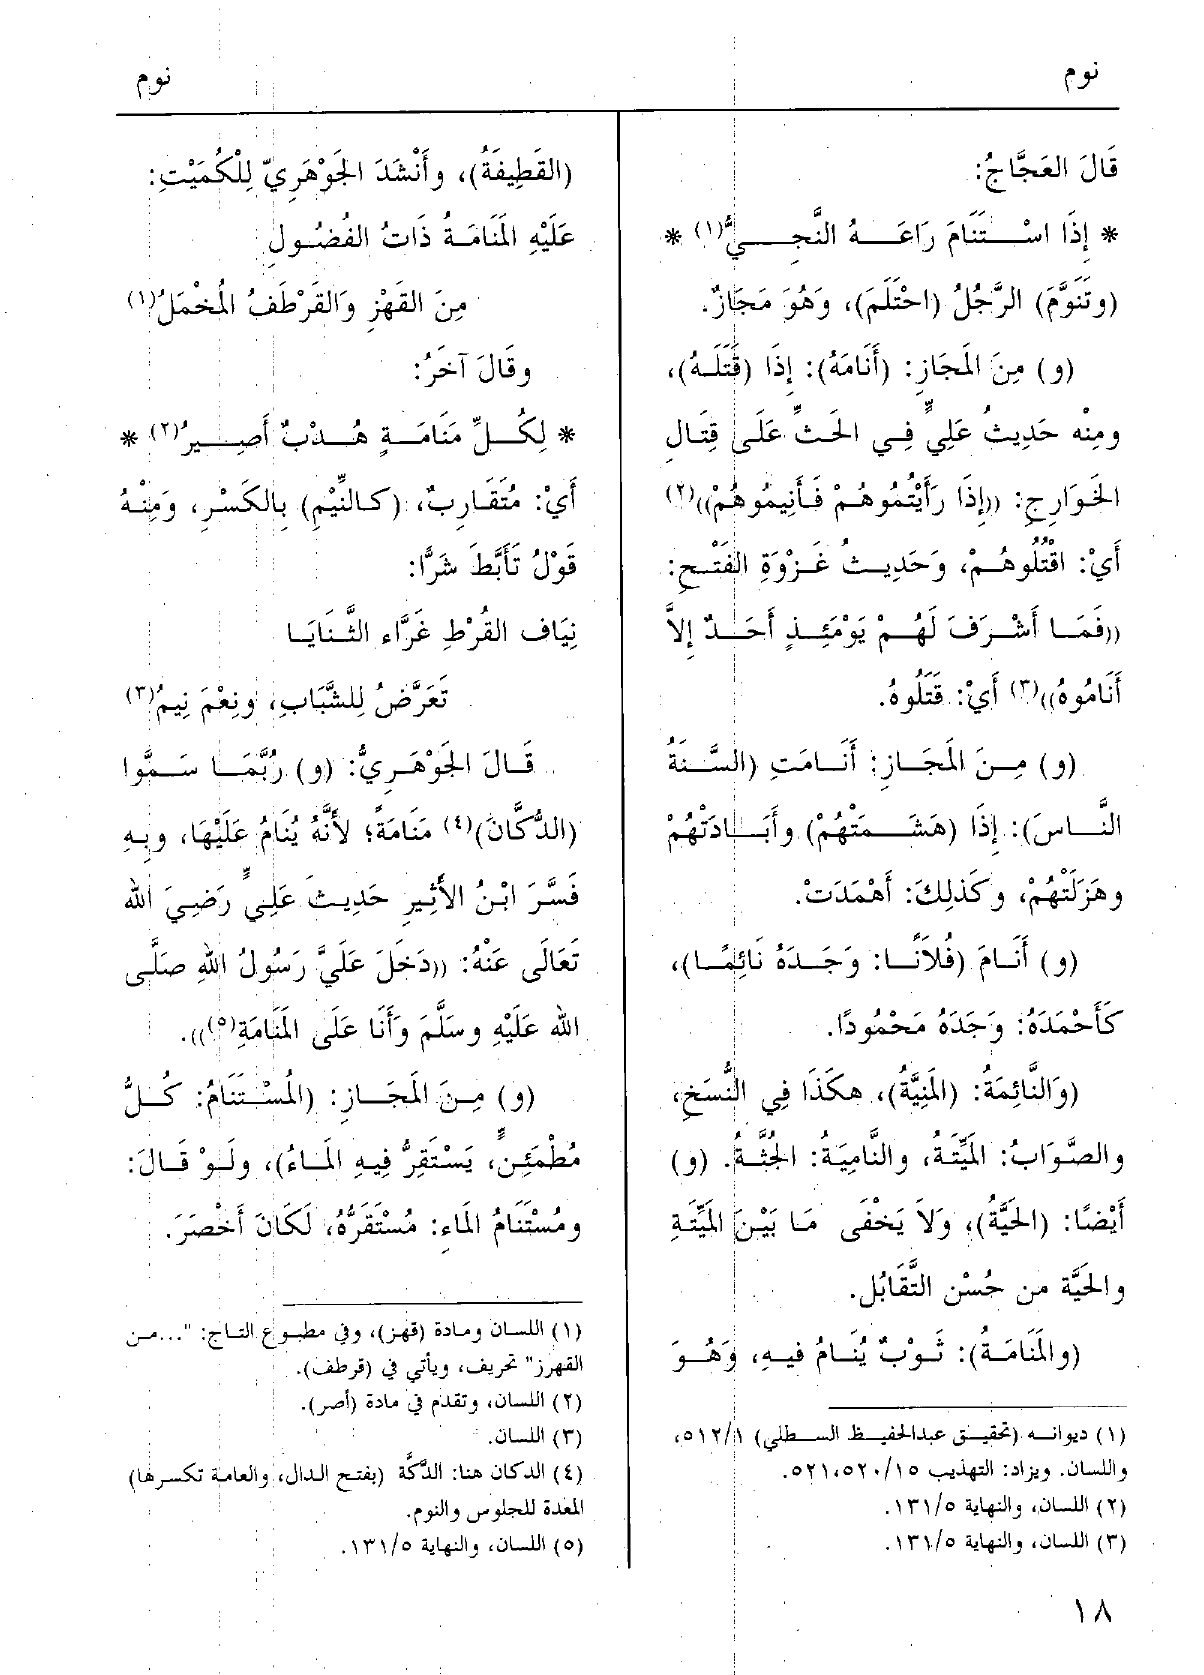 نوم
نوم
قَالَ العَجَّاجُ:
* إِذَا اسْـتَنَامَ رَاعَـهُ النَّجِـيُّ(١) *
(وتَنَوَّمَ) الرَّجُلُ (احْتَلَمَ)، وَهُوَ مَجَازٌ.
(و) مِنَ المَجَازِ: (أَنَامَهُ): إِذَا (قَتَلَـهُ)،
ومِنْه حَدِيثُ عَلِيٍّ فِي الحَثِّ عَلَى قِتَالِ
الخَوَارِجِ: ((إِذَا رَأَيْتُمُوهُمْ فَأَنِيمُوهُمْ))(٢)
أَيْ: اقْتُلُوهُـمْ، وَحَدِيـثُ غَـزْوَةِ الفَتْـحِ:
((فَمَـا أَشْـرَفَ لَهُـمْ يَوْمَئِـذٍ أَحَـدٌ إِلاَّ
أَنَامُوهُ))(٣) أَيْ: قَتَلُوهُ.
(و) مِـنَ المَجَـازِ: أَنَـامَتِ (السَّـنَةُ
النَّـاسَ): إِذَا (هَشَـمَتْهُمْ) وأَبَـادَتْهُمْ
وهَزَلَتْهُمْ، وكَذلِكَ: أَهْمَدَتْ.
(و) أَنَـامَ (فُلاَنًـا: وَجَـدَهُ نَائِمًـا)،
كَأَحْمَدَهُ: وَجَدَهُ مَحْمُودًا.
(وَالنَّائِمَةُ: (المَنِيَّةُ)، هكَذَا فِي النُّسَخِ،
والصَّوَابُ: المَيِّتَةُ، والنَّامِيَةُ: الجُثَّةُ. (و)
أَيْضًا: (الحَيَّةُ)، وَلاَ يَخْفَى مَا بَيْنَ المَيِّتَةِ
والحَيَّة من حُسْن التَّقَابُل.
(والمَنَامَـةُ): ثَـوْبٌ يُنَـامُ فيـهِ، وَهُـوَ
(١) ديوانـه (تحقيـق عبدالحفيـظ السـطلي) ٥١٢/١،
واللسان. ويزاد: التهذيب ٥٢٠/١٥،٥٢١.
(٢) اللسان، والنهاية ١٣١/٥.
(٣) اللسان، والنهاية ١٣١/٥.
(القَطِيفَةُ)، وأَنْشَدَ الجَوْهَرِيّ لِلْكُمَيْتِ:
عَلَيْهِ المَنَامَـةُ ذَاتُ الفُضُـولِ
مِنَ القَهْزِ وَالقَرْطَفُ المُخْمَلُ(١)
وقَالَ آخَرُ:
* لِكُـلِّ مَنَامَـةٍ هُـدْبٌ أَصِـيرُ(٢) *
أَيْ: مُتَقَـارِبٌ، (كـالنِّيْمِ) بِالكَسْـرِ، وَمِنْـهُ
قَوْلُ تَأَبَّطَ شَرًّا:
نِيَاف القُرْطِ غَرَّاء الثَّنَايَـا
تَعَرَّضُ لِلشَّبَابِ، ونِعْمَ نِيمُ(٣)
قَـالَ الجَوْهَـرِيُّ: (و) رُبَّمَـا سَـمُّوا
(الدُّكَّانَ)(٤) مَنَامَةً؛ لأَنَّهُ يُنَامُ عَلَيْهَا، وبِـهِ
فَسَّرَ ابْنُ الأَثِيرِ حَدِيثَ عَلِيٍّ رَضِيَ الله
تَعَالَى عَنْهُ: ((دَخَلَ عَلَيَّ رَسُولُ اللهِ صَلَّى
الله عَلَيْهِ وسَلَّمَ وَأَنَا عَلَى المَنَامَةِ(٥))).
(و) مِـنَ المَجَـازِ: (المُسْـتَنَامُ: كُـلُّ
مُطْمَئِنٍّ، يَسْتَقِرُّ فِيهِ المَـاءُ)، ولَـوْ قَـالَ:
ومُسْتَنَامُ المَاءِ: مُسْتَقَرُّهُ، لَكَانَ أَخْصَرَ.
(١) اللسان ومادة (قهز)، وفي مطبوع التاج: "...من
القهرز" تحريف، ويأتي في (قرطف).
(٢) اللسان، وتقدم في مادة (أصر).
(٣) اللسان.
(٤) الدكان هنا: الدَّكَّة (بفتح الدال، والعامة تكسرها)
المعدة للجلوس والنوم.
(٥) اللسان، والنهاية ١٣١/٥.
١٨